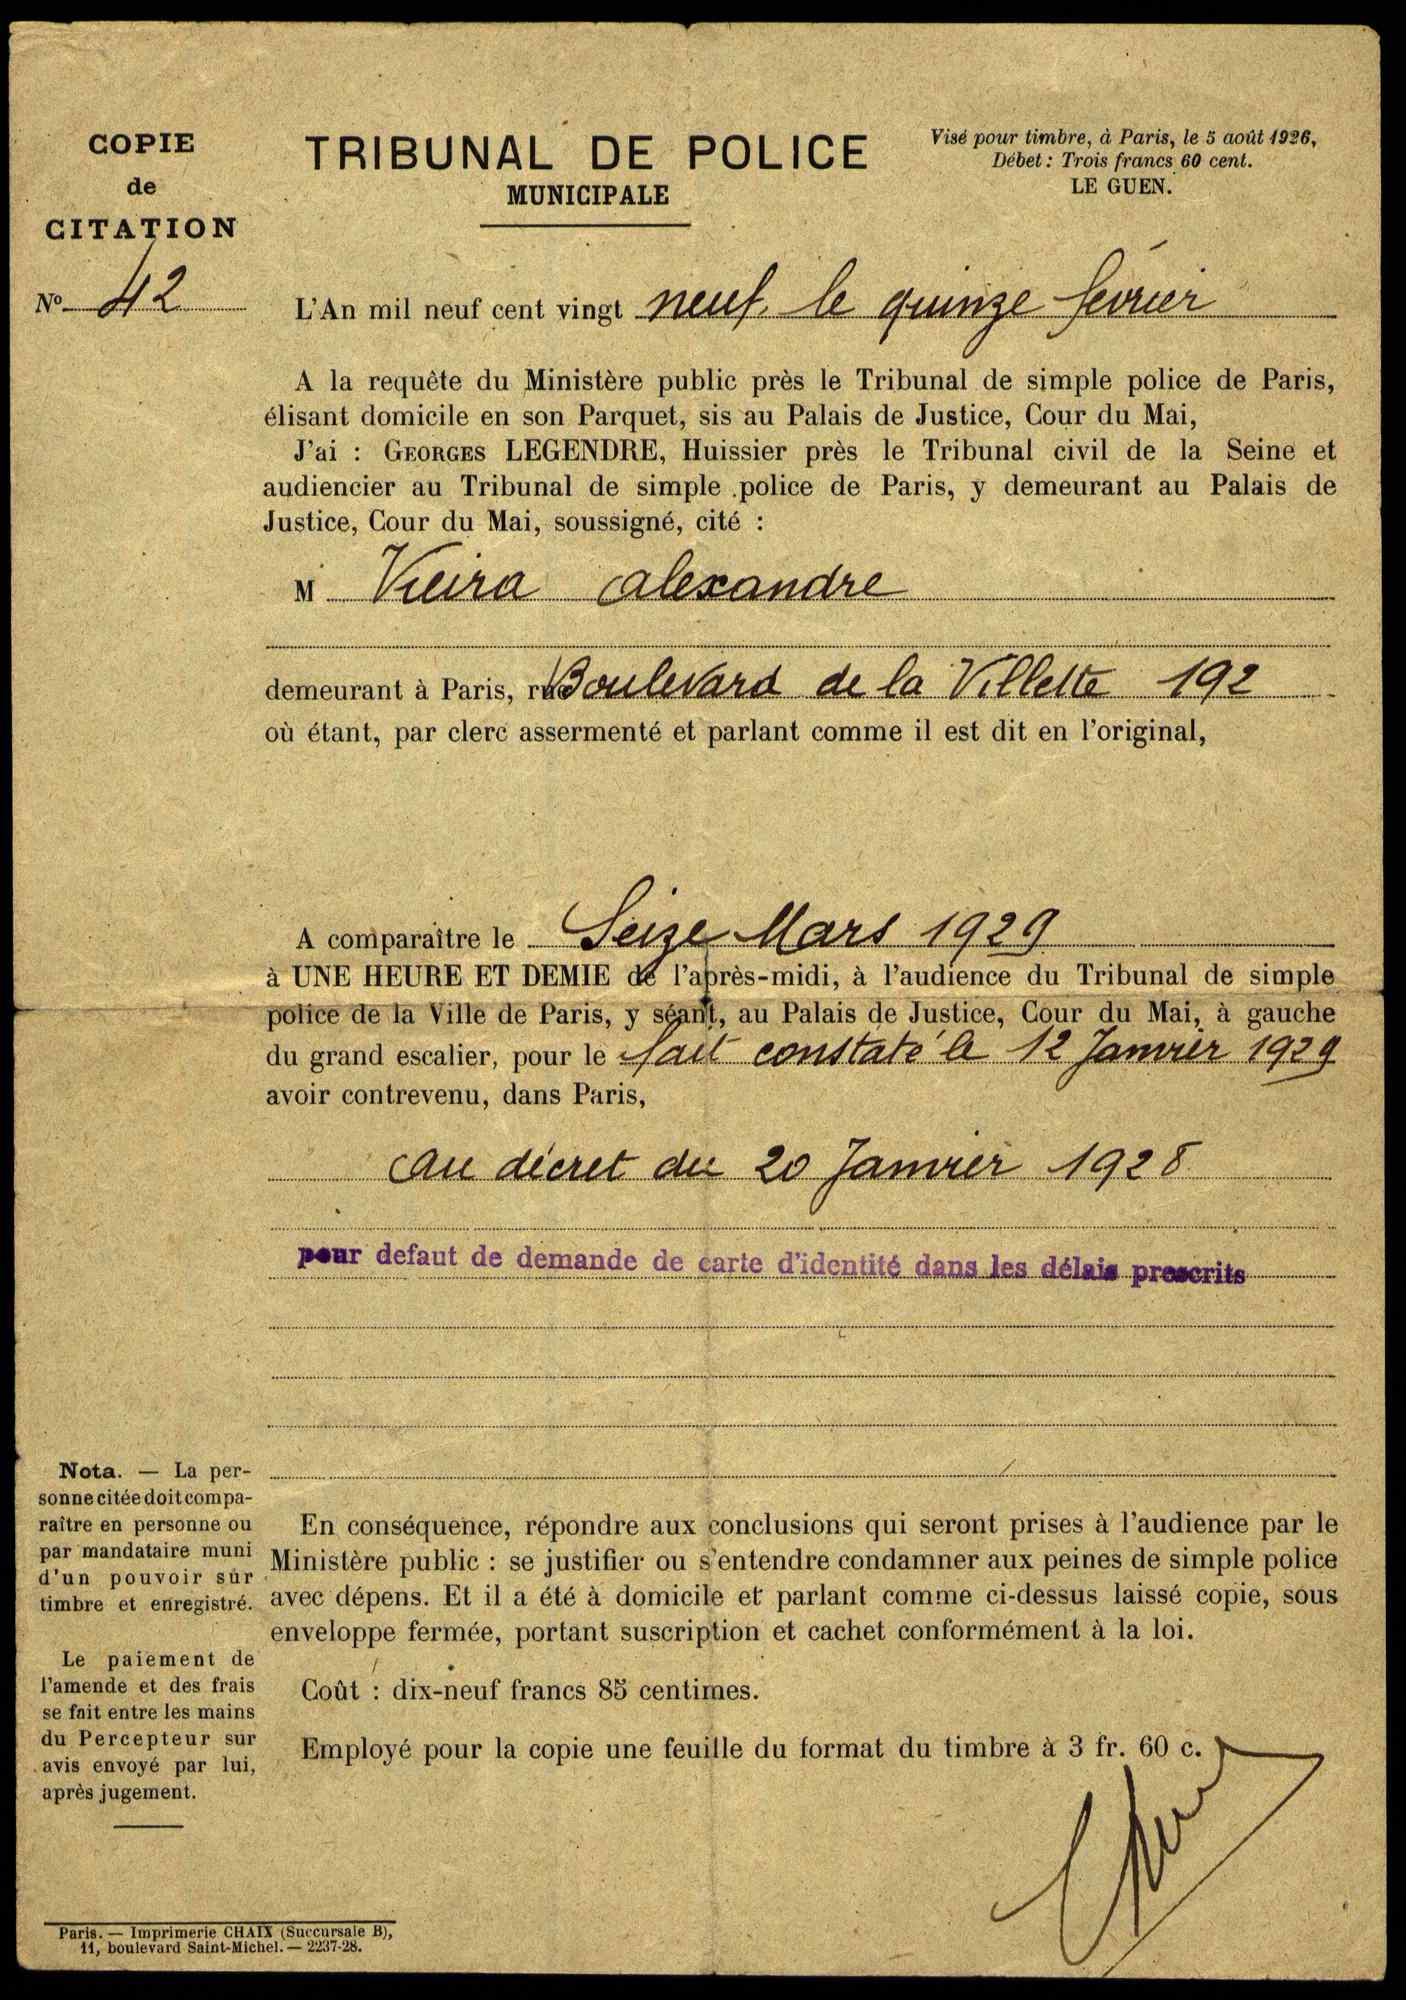 COPIE
de
CITATION
Nº 42
TRIBUNAL DE POLICE
MUNICIPALE
Visé pour timbre, à Paris, le 5 août 1926,
Débet : Trois francs 60 cent.
LE GUEN.
L'An mil neuf cent vingt neuf. le quinze février
A la requête du Ministère public près le Tribunal de simple police de Paris,
élisant domicile en son Parquet, sis au Palais de Justice, Cour du Mai,
J'ai : GEORGES LEGENDRE, Huissier près le Tribunal civil de la Seine et
audiencier au Tribunal de simple police de Paris, y demeurant au Palais de
Justice, Cour du Mai, soussigné, cité :
M Vieira alexandre
demeurant à Paris, rue Boulevard de la Villette 192
où étant, par clerc assermenté et parlant comme il est dit en l'original,
A comparaître le Seize Mars 1929
à UNE HEURE ET DEMIE de l'après-midi, à l'audience du Tribunal de simple
police de la Ville de Paris, y séant, au Palais de Justice, Cour du Mai, à gauche
du grand escalier, pour le fait constaté le 12 Janvier 1929
avoir contrevenu, dans Paris,
au décret du 20 Janvier 1928
pour defaut de demande de carte d'identité dans les délais prescrits
Nota. — La per-
sonne citée doit compa-
raître en personne ou
par mandataire muni
d'un pouvoir sur
timbre et enregistré.
Le paiement de
l'amende et des frais
se fait entre les mains
du Percepteur sur
avis envoyé par lui,
après jugement.
En conséquence, répondre aux conclusions qui seront prises à l'audience par le
Ministère public : se justifier ou s'entendre condamner aux peines de simple police
avec dépens. Et il a été à domicile et parlant comme ci-dessus laissé copie, sous
enveloppe fermée, portant suscription et cachet conformément à la loi.
Coût : dix-neuf francs 85 centimes.
Employé pour la copie une feuille du format du timbre à 3 fr. 60 c.
Paris. — Imprimerie CHAIX (Succursale B),
11, boulevard Saint-Michel. — 2237-28.